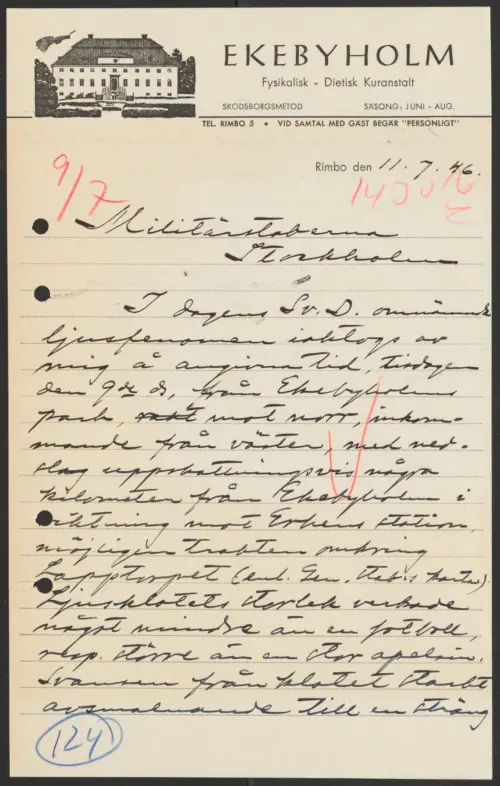 EKEBYHOLM
Fysikalisk - Dietisk Kuranstalt
SKODSBORGSMETOD SÄSONG: JUNI - AUG.
TEL. RIMBO 5 • VID SAMTAL MED GÄST BEGÄR "PERSONLIGT"
Rimbo den 11.7.46.
9/7
Militärstaberna
Stockholm
I dagens Sv. D. omnämnda
ljusfenomen iakttogs av
mig å angivna tid, tisdagen
den 9de ds, från Ekebyholms
park, mot norr, inkom-
mande från väster, med ned-
slag uppskattningsvis några
kilometer från Ekebyholm i
riktning mot Erkens station,
möjligen trakten omkring
Lapptorpet (enl. Gen. stab:s karta).
Ljusklotets storlek verkade
något mindre än en fotboll,
resp. större än en stor apelsin.
Svansen från klotet starkt
avsmalnande till en sträng
124